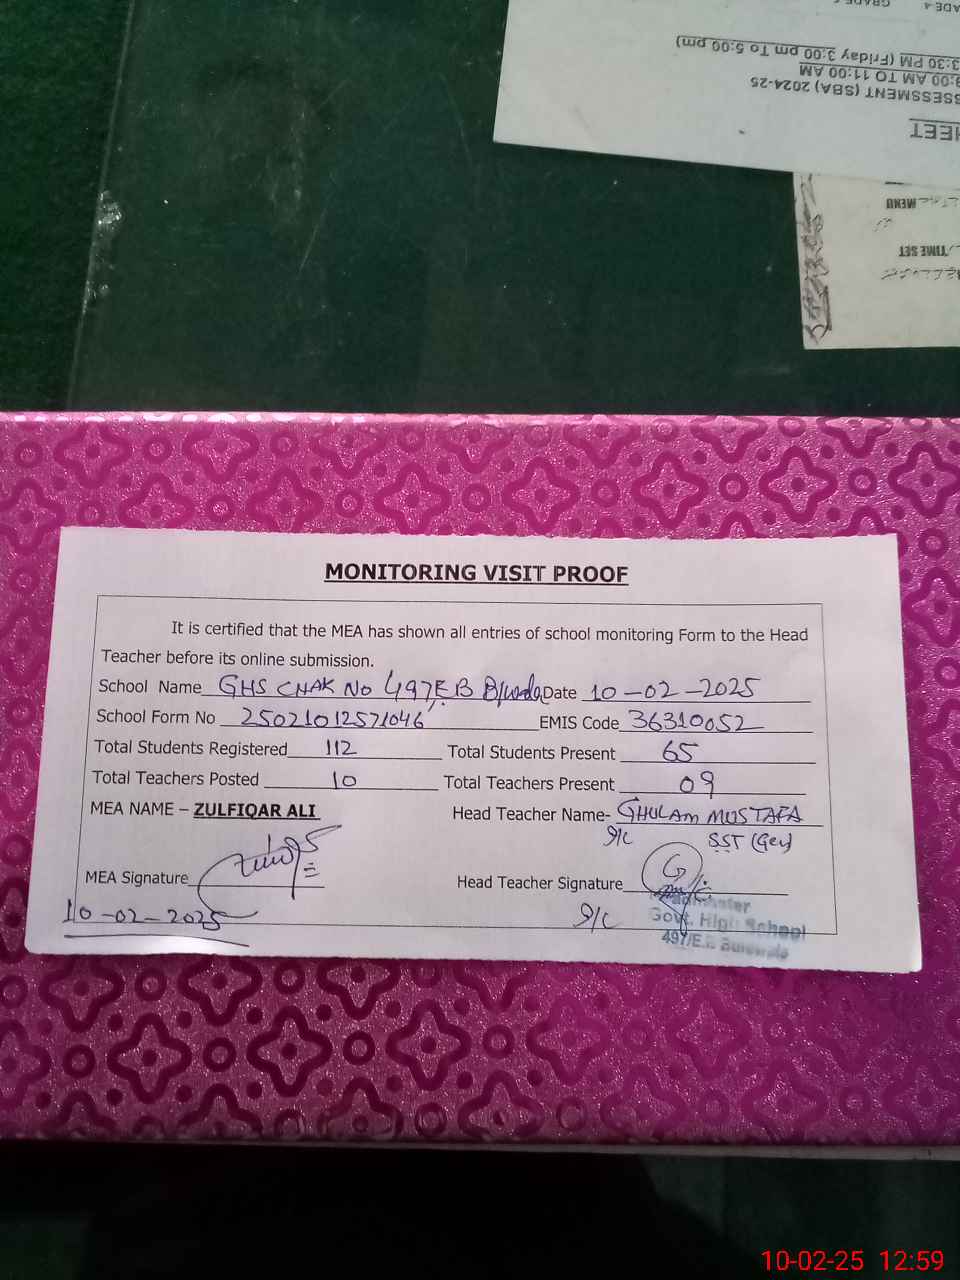 GRADE-4 GRADE-5
3:30 PM (Friday 3:00 pm To 5:00 pm)
9:00 AM TO 11:00 AM
SSESSMENT (SBA) 2024-25
HEET
MENU
TIME SET
MONITORING VISIT PROOF
It is certified that the MEA has shown all entries of school monitoring Form to the Head
Teacher before its online submission.
School Name GHS CHAK No 497/E.B Date 10-02-2025
School Form No 25021012571046 EMIS Code 36310052
Total Students Registered 112 Total Students Present 65
Total Teachers Posted 10 Total Teachers Present 09
MEA NAME – ZULFIQAR ALI Head Teacher Name- GHULAM MUSTAFA
I/C SST (Gen)
MEA Signature Head Teacher Signature
10-02-2025 I/C
Headmaster
Govt. High School
497/E.B Burewala
10-02-25 12:59